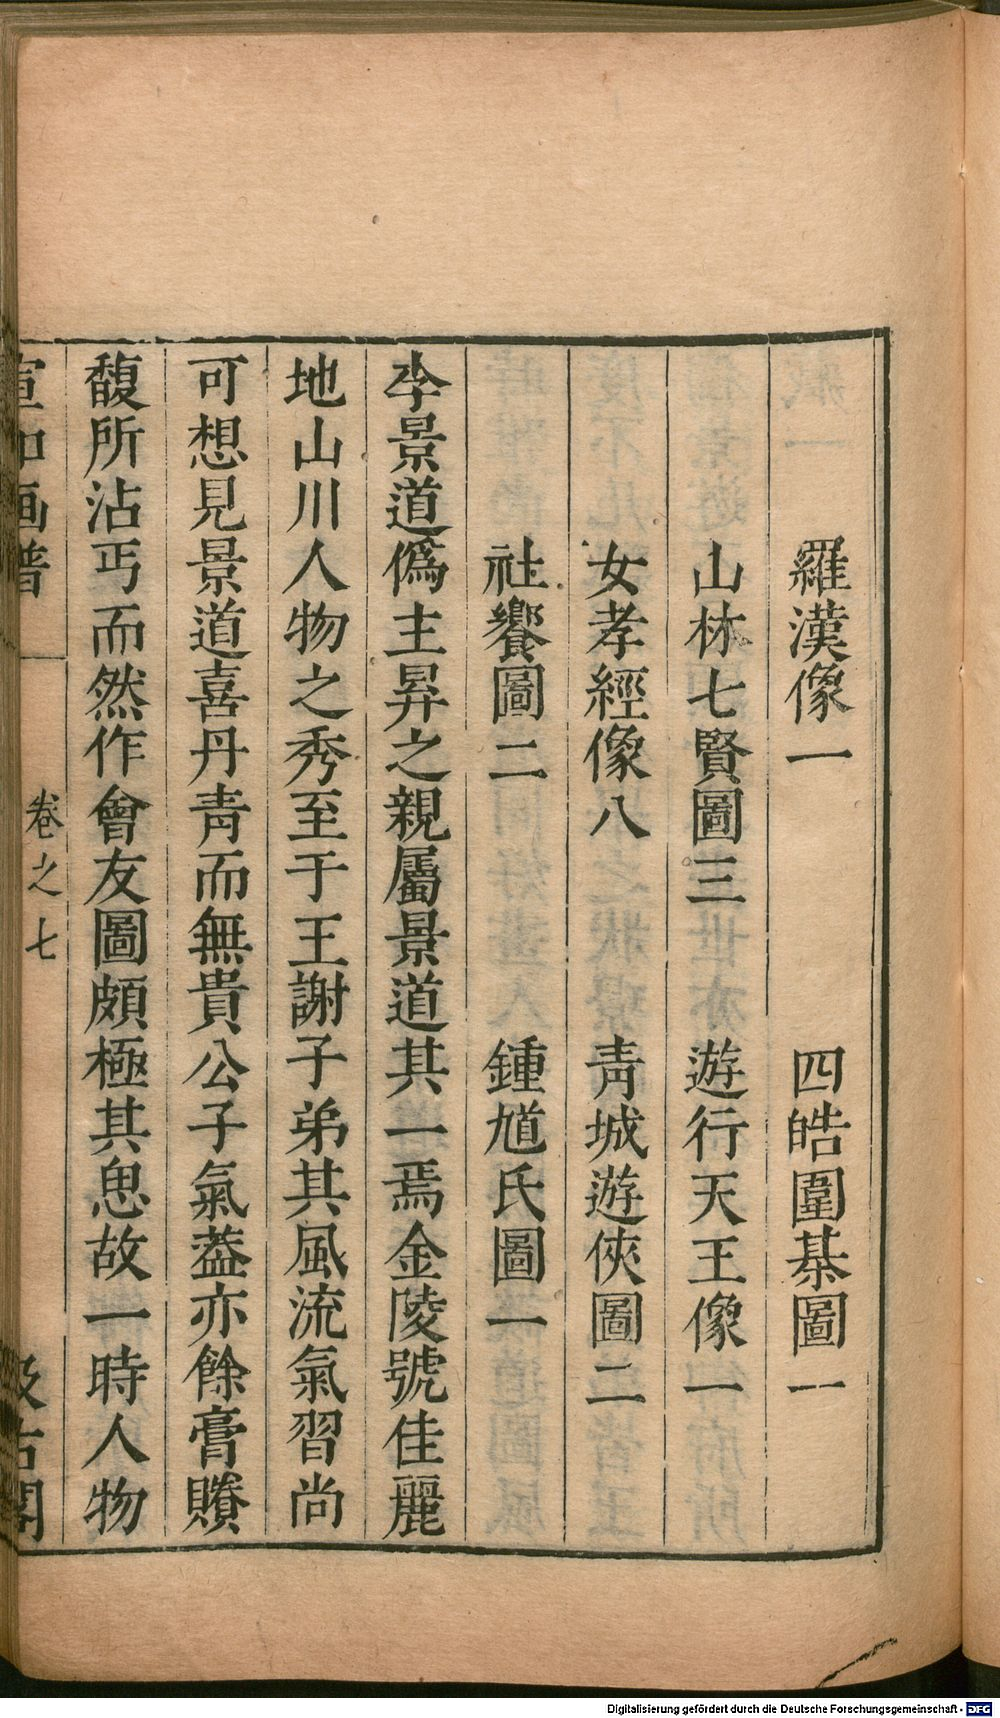 羅漢像一　四皓圍棊圖一
山林七賢圖三　遊行天王像一
女孝經像八　青城遊俠圖二
社饗圖二　鍾馗氏圖一
李景道僞主昇之親屬景道其一焉金陵號佳麗
地山川人物之秀至于王謝子弟其風流氣習尚
可想見景道喜丹青而無貴公子氣葢亦餘膏賸
馥所沾丐而然作會友圖頗極其思故一時人物
宣和画譜
卷之七
汲古閣
Digitalisierung gefördert durch die Deutsche Forschungsgemeinschaft - DFG